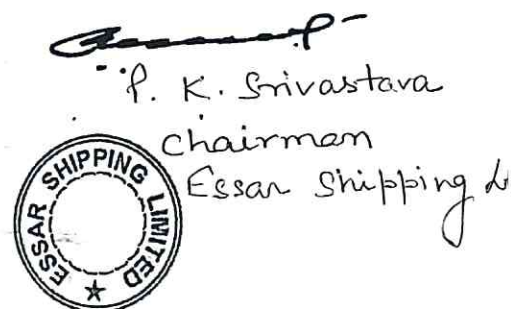 P. K. Srivastava
Chairman
Essar Shipping
ESSAR SHIPPING LIMITED